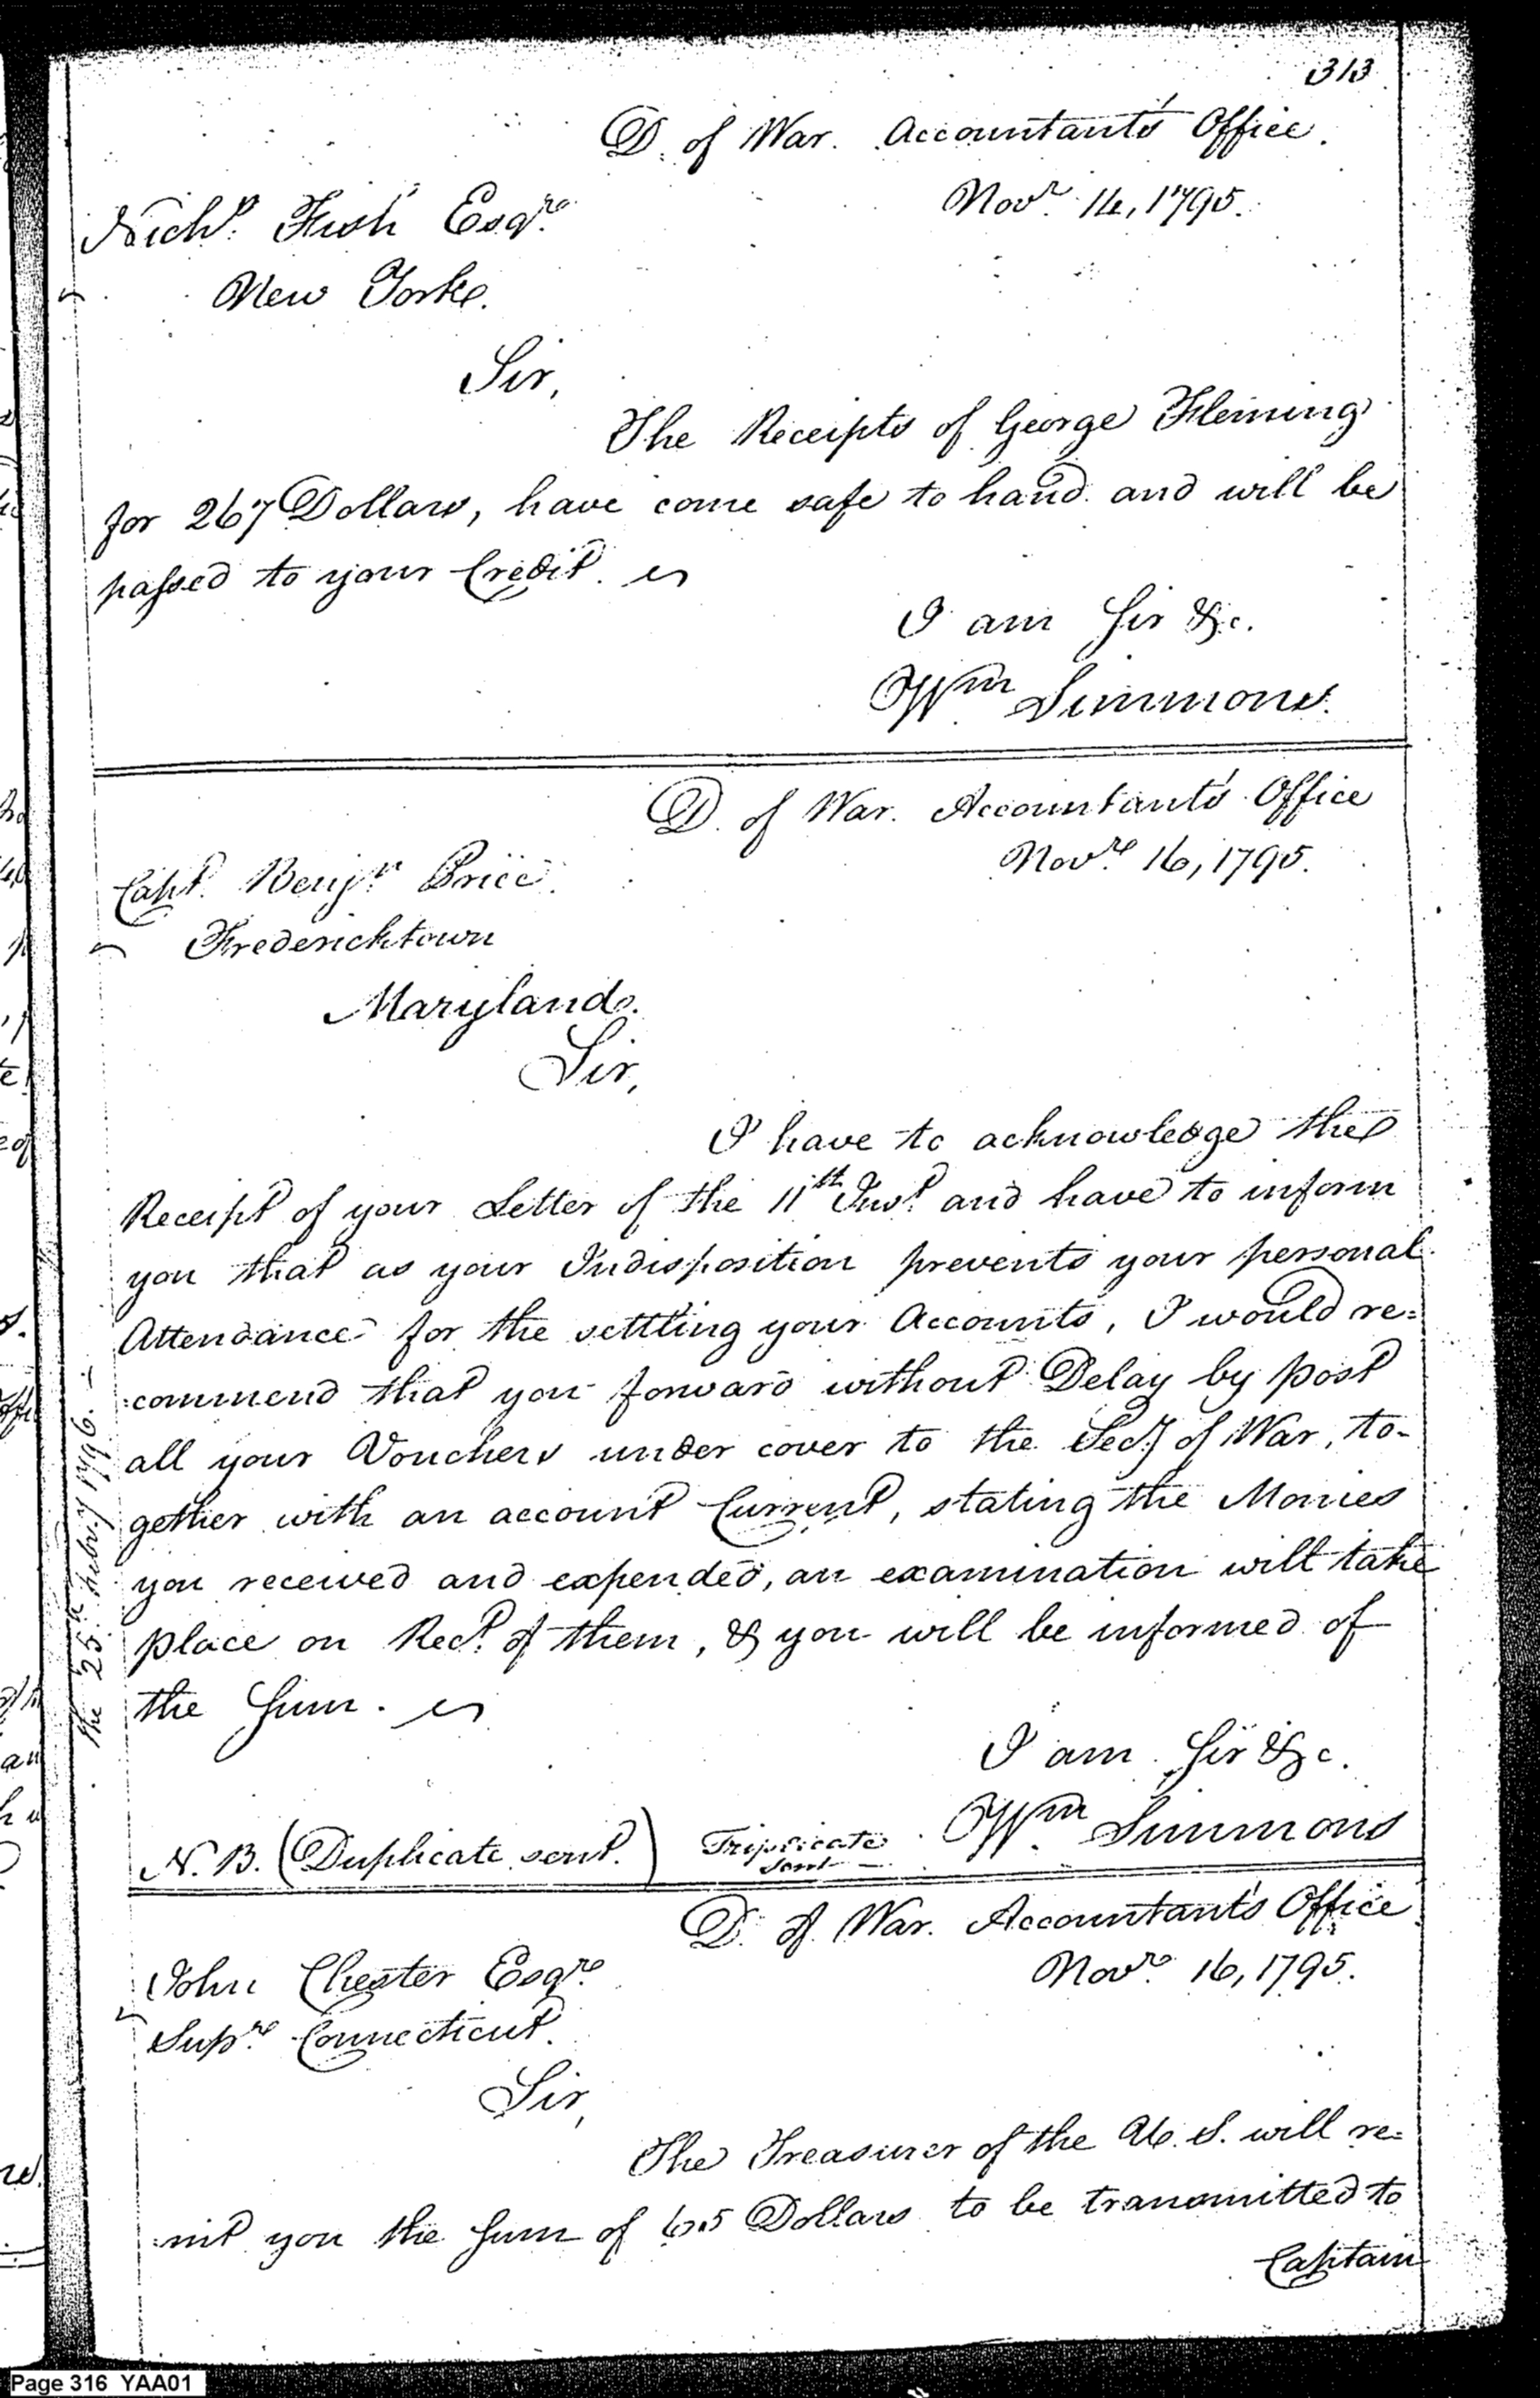 313
D. of War. Accountant's Office.
Novr. 14, 1795.
Nichs. Fish Esqre.
New York.
Sir,
The Receipts of George Fleming
for 267 Dollars, have come safe to hand and will be
passed to your Credit.
I am Sir &c.
Wm Simmons.
D. of War. Accountant's Office
Novre 16, 1795.
Capt. Benjn Price.
Fredericktown
Maryland.
Sir,
I have to acknowledge the
Receipt of your Letter of the 11th Inst. and have to inform
you that as your Indisposition prevents your personal
Attendance for the settling your Accounts, I would re=
commend that you forward without Delay by post
all your Vouchers under cover to the Secy of War, to-
gether with an account Current, stating the Monies
you received and expended, an examination will take
place on Rect. of them, & you will be informed of
the Sum.
the 25th Feby. 1796.
I am Sir &c.
Wm Simmons
N.B. (Duplicate sent.) Triplicate
sent
D. of War. Accountant's Office
Novre. 16, 1795.
John Chester Esqre.
Supre. Connecticut.
Sir,
The Treasurer of the U. S. will re=
mit you the Sum of 65 Dollars to be transmitted to
Captain
Page 316 YAA01